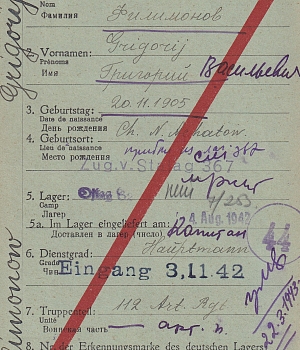 Nom
Фамилия
Филимонов
Grigorij
2. Vornamen: Grigorij
Prénoms
Имя
Григорий Васильевич
3. Geburtstag: 20.11.1905
Date de naissance
День рождения
4. Geburtsort:
Lieu de naissance
Место рождения
Zug. v. Stalag 367
5. Lager: Oflag
Camp
Лагерь
5a. Im Lager eingeliefert am: 4. Aug. 1942
Доставлен в лагерь (число) Капитан
44
6. Dienstgrad: Hauptmann
Grade
Чин
Eingang 3.11.42
7. Truppenteil: 112 Art. Rgt
Unité
Воинская часть арт. п.
22.3.1943
8. No der Erkennungsmarke des deutschen Lagers